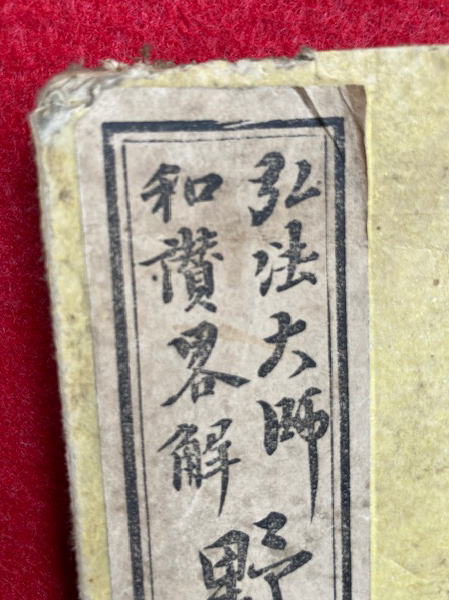 弘法大師
和讃畧解
野